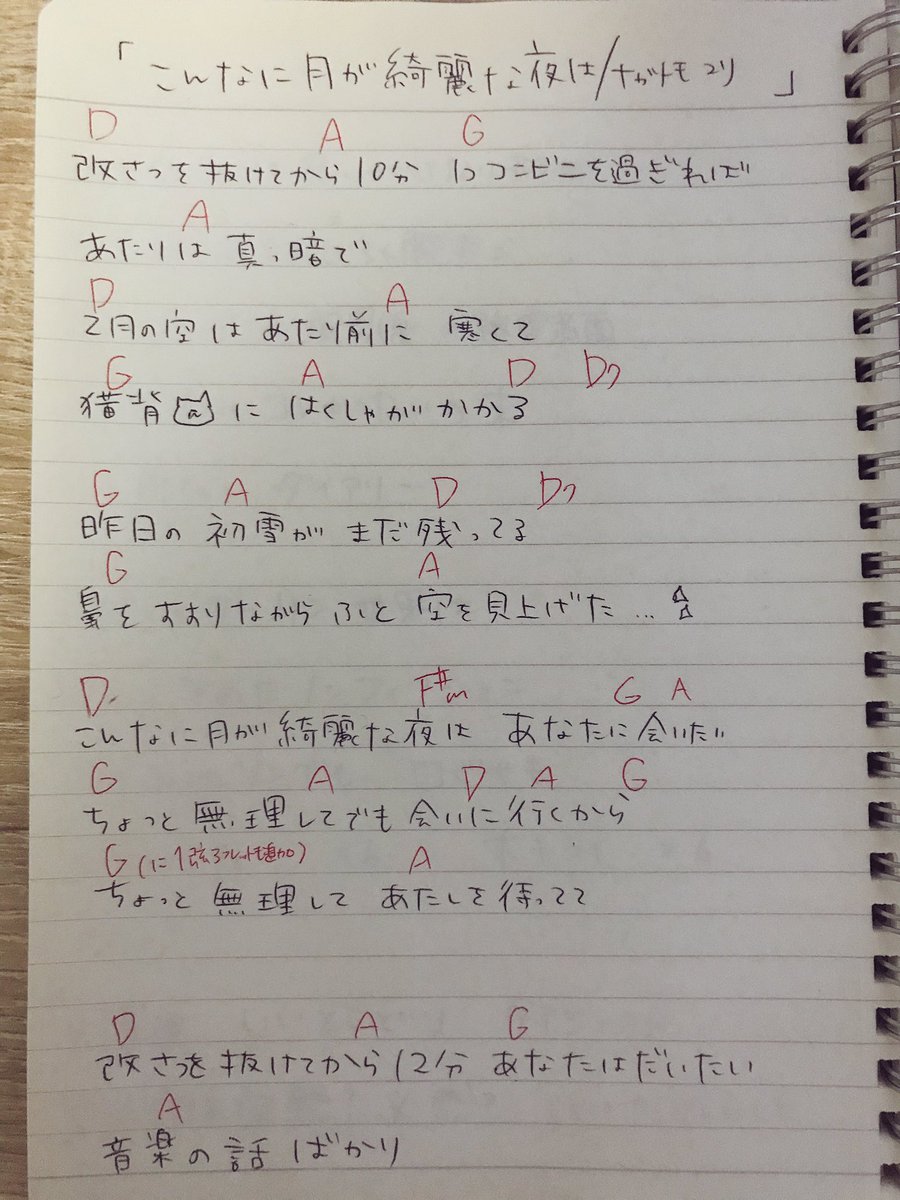 「こんなに月が綺麗な夜は/ナガトモヨリ」
D A G
改さつを抜けてから10分 1つコンビニを過ぎれば
A
あたりは真っ暗で
D A
2月の空はあたり前に 寒くて
G A D D7
猫背に はくしゃがかかる
G A D D7
昨日の 初雪が まだ残ってる
G A
鼻をすすりながら ふと 空を見上げた…
D F#m G A
こんなに月が綺麗な夜は あなたに会いたい
G A D A G
ちょっと 無理してでも 会いに行くから
G(に1弦3フレットも追加) A
ちょっと 無理して あたしを待ってて
D A G
改さつを抜けてから12分 あなたはだいたい
A
音楽の話ばかり